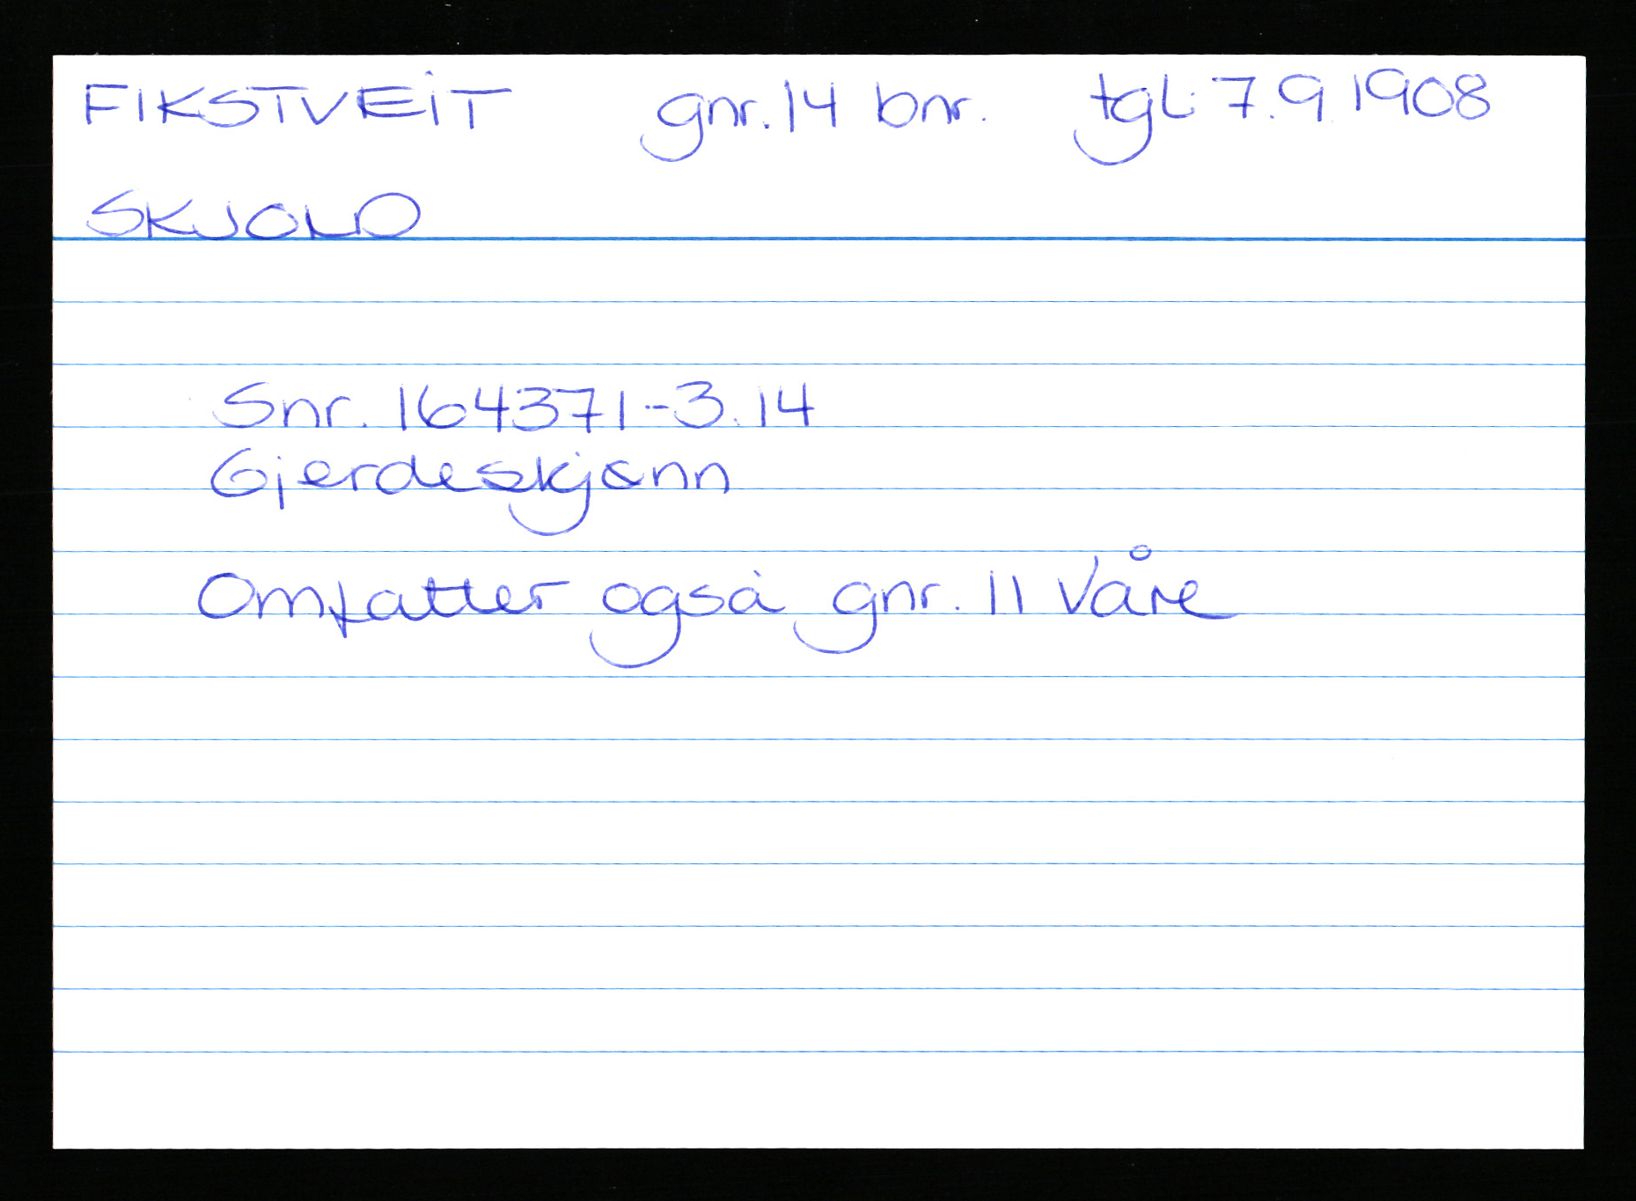 FIKSTVEIT gnr. 14 bnr. tgl. 7.9.1908
SKJOLD
Snr. 164371-3.14
Gjerdeskjønn
Omfatter også gnr. 11 Våre